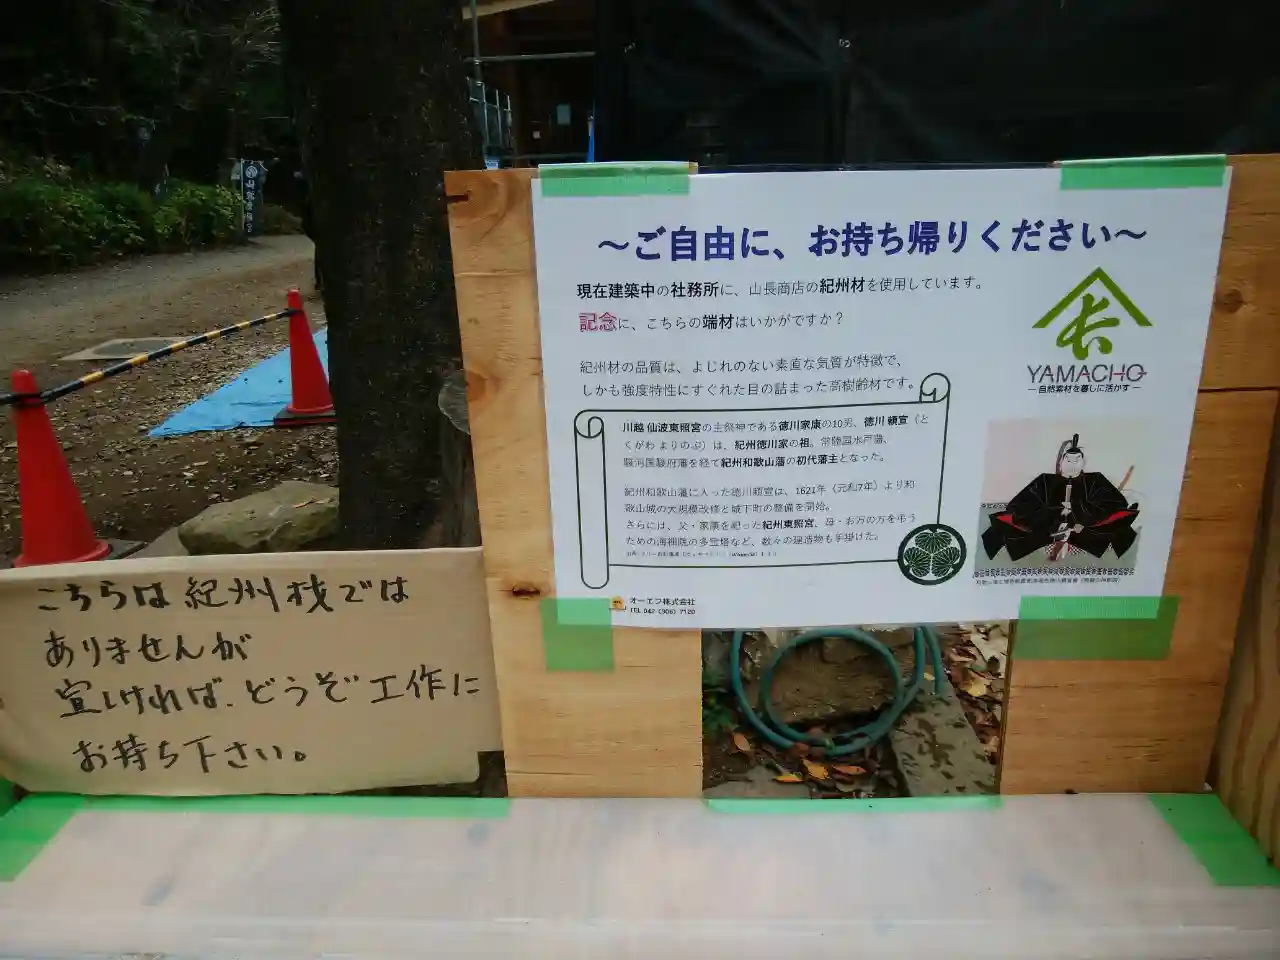 ～ご自由に、お持ち帰りください～
現在建築中の社務所に、山長商店の紀州材を使用しています。
記念に、こちらの端材はいかがですか？
紀州材の品質は、よじれのない素直な気質が特徴で、
しかも強度特性にすぐれた目の詰まった高樹齢材です。
YAMACHO
―自然素材を暮しに活かす―
川越 仙波東照宮の主祭神である徳川家康の10男、徳川 頼宣（と
くがわ よりのぶ）は、紀州徳川家の祖。常陸国水戸藩、
駿河国駿府藩を経て紀州和歌山藩の初代藩主となった。
紀州和歌山藩に入った徳川頼宣は、1621年（元和7年）より和
歌山城の大規模改修と城下町の整備を開始。
さらには、父・家康を祀った紀州東照宮、母・お万の方を弔う
ための海禅院の多宝塔など、数々の建造物も手掛けた。
オーエフ株式会社
TEL 042（306）7120
こちらは紀州材では
ありませんが
宜しければ、どうぞ工作に
お持ち下さい。